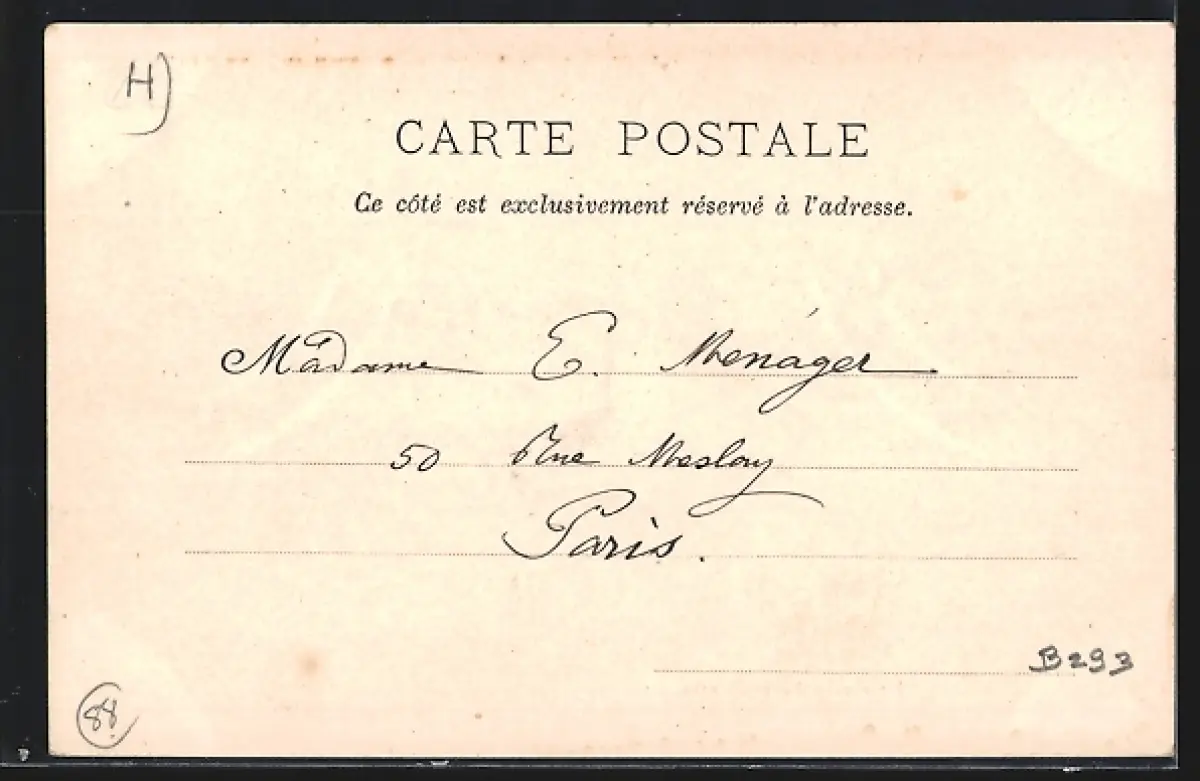 H)
CARTE POSTALE
Ce côté est exclusivement réservé à l'adresse.
Madame E. Menáger
50 Rue Meslay
Paris.
B293
88